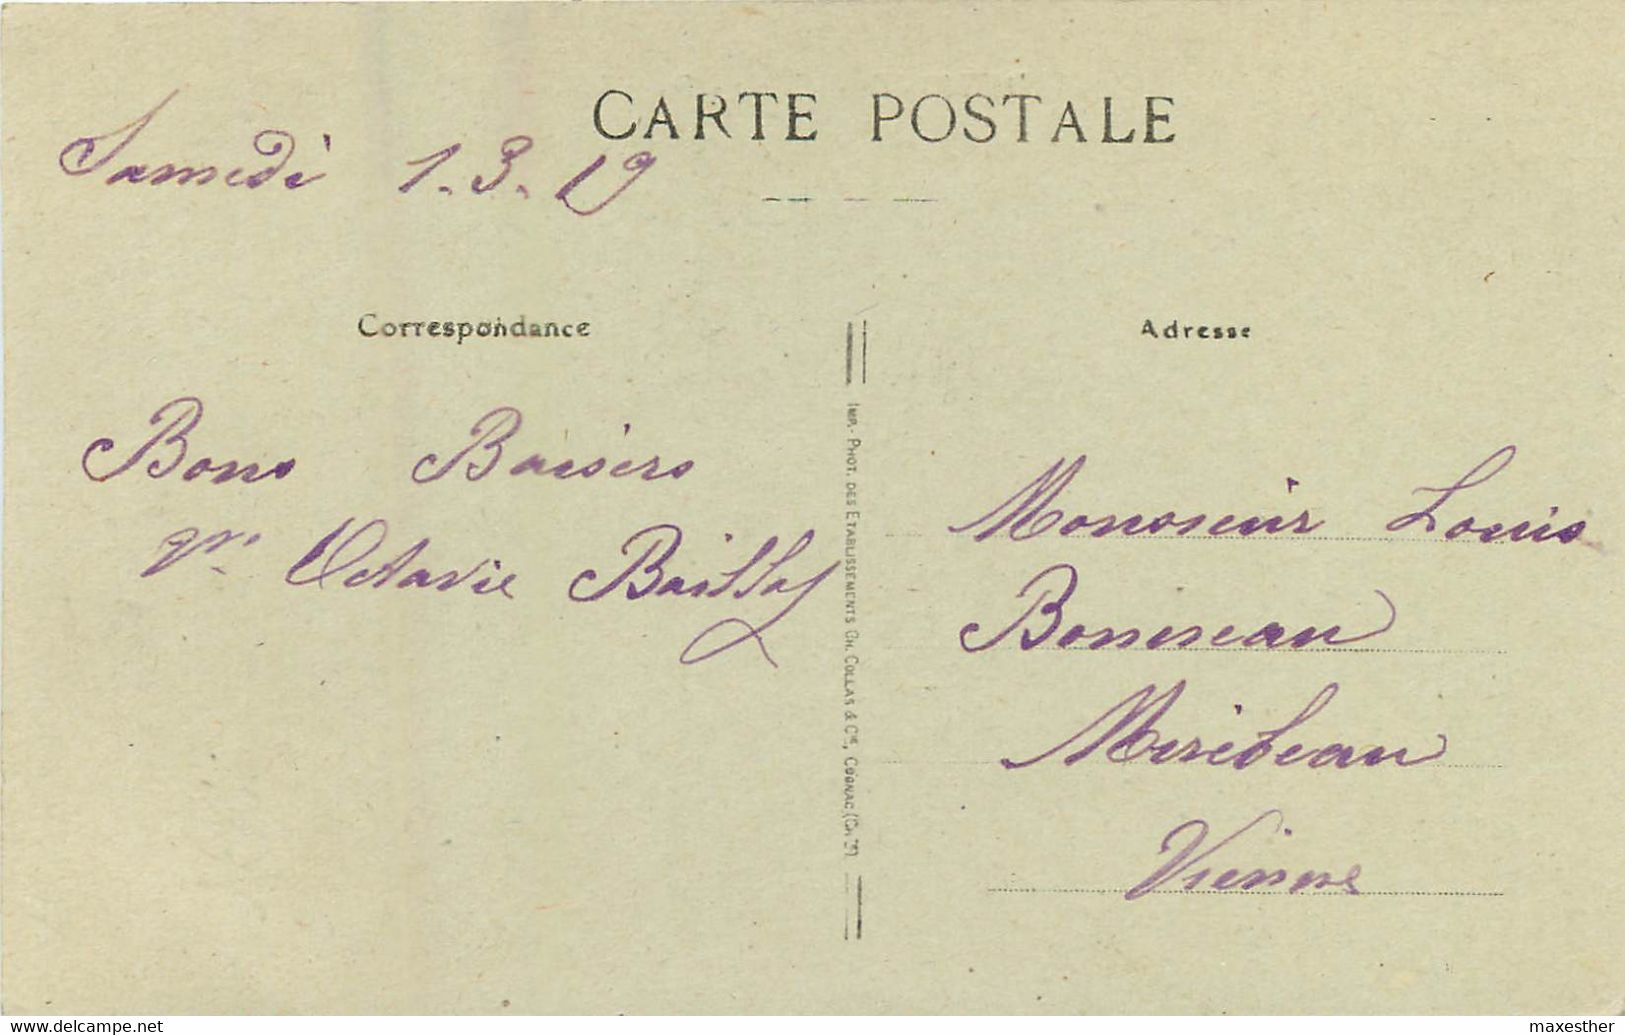 CARTE POSTALE
Samedi 1.3.19
Correspondance
Adresse
Bons Baisers
Octavie
IMP.- PHOT. DES ETABLISSEMENTS CH. COLLAS & Cie, COGNAC (Ch te)
Monsieur Louis
Bonneau
Mirebeau
Vienne
www.delcampe.net
maxesther